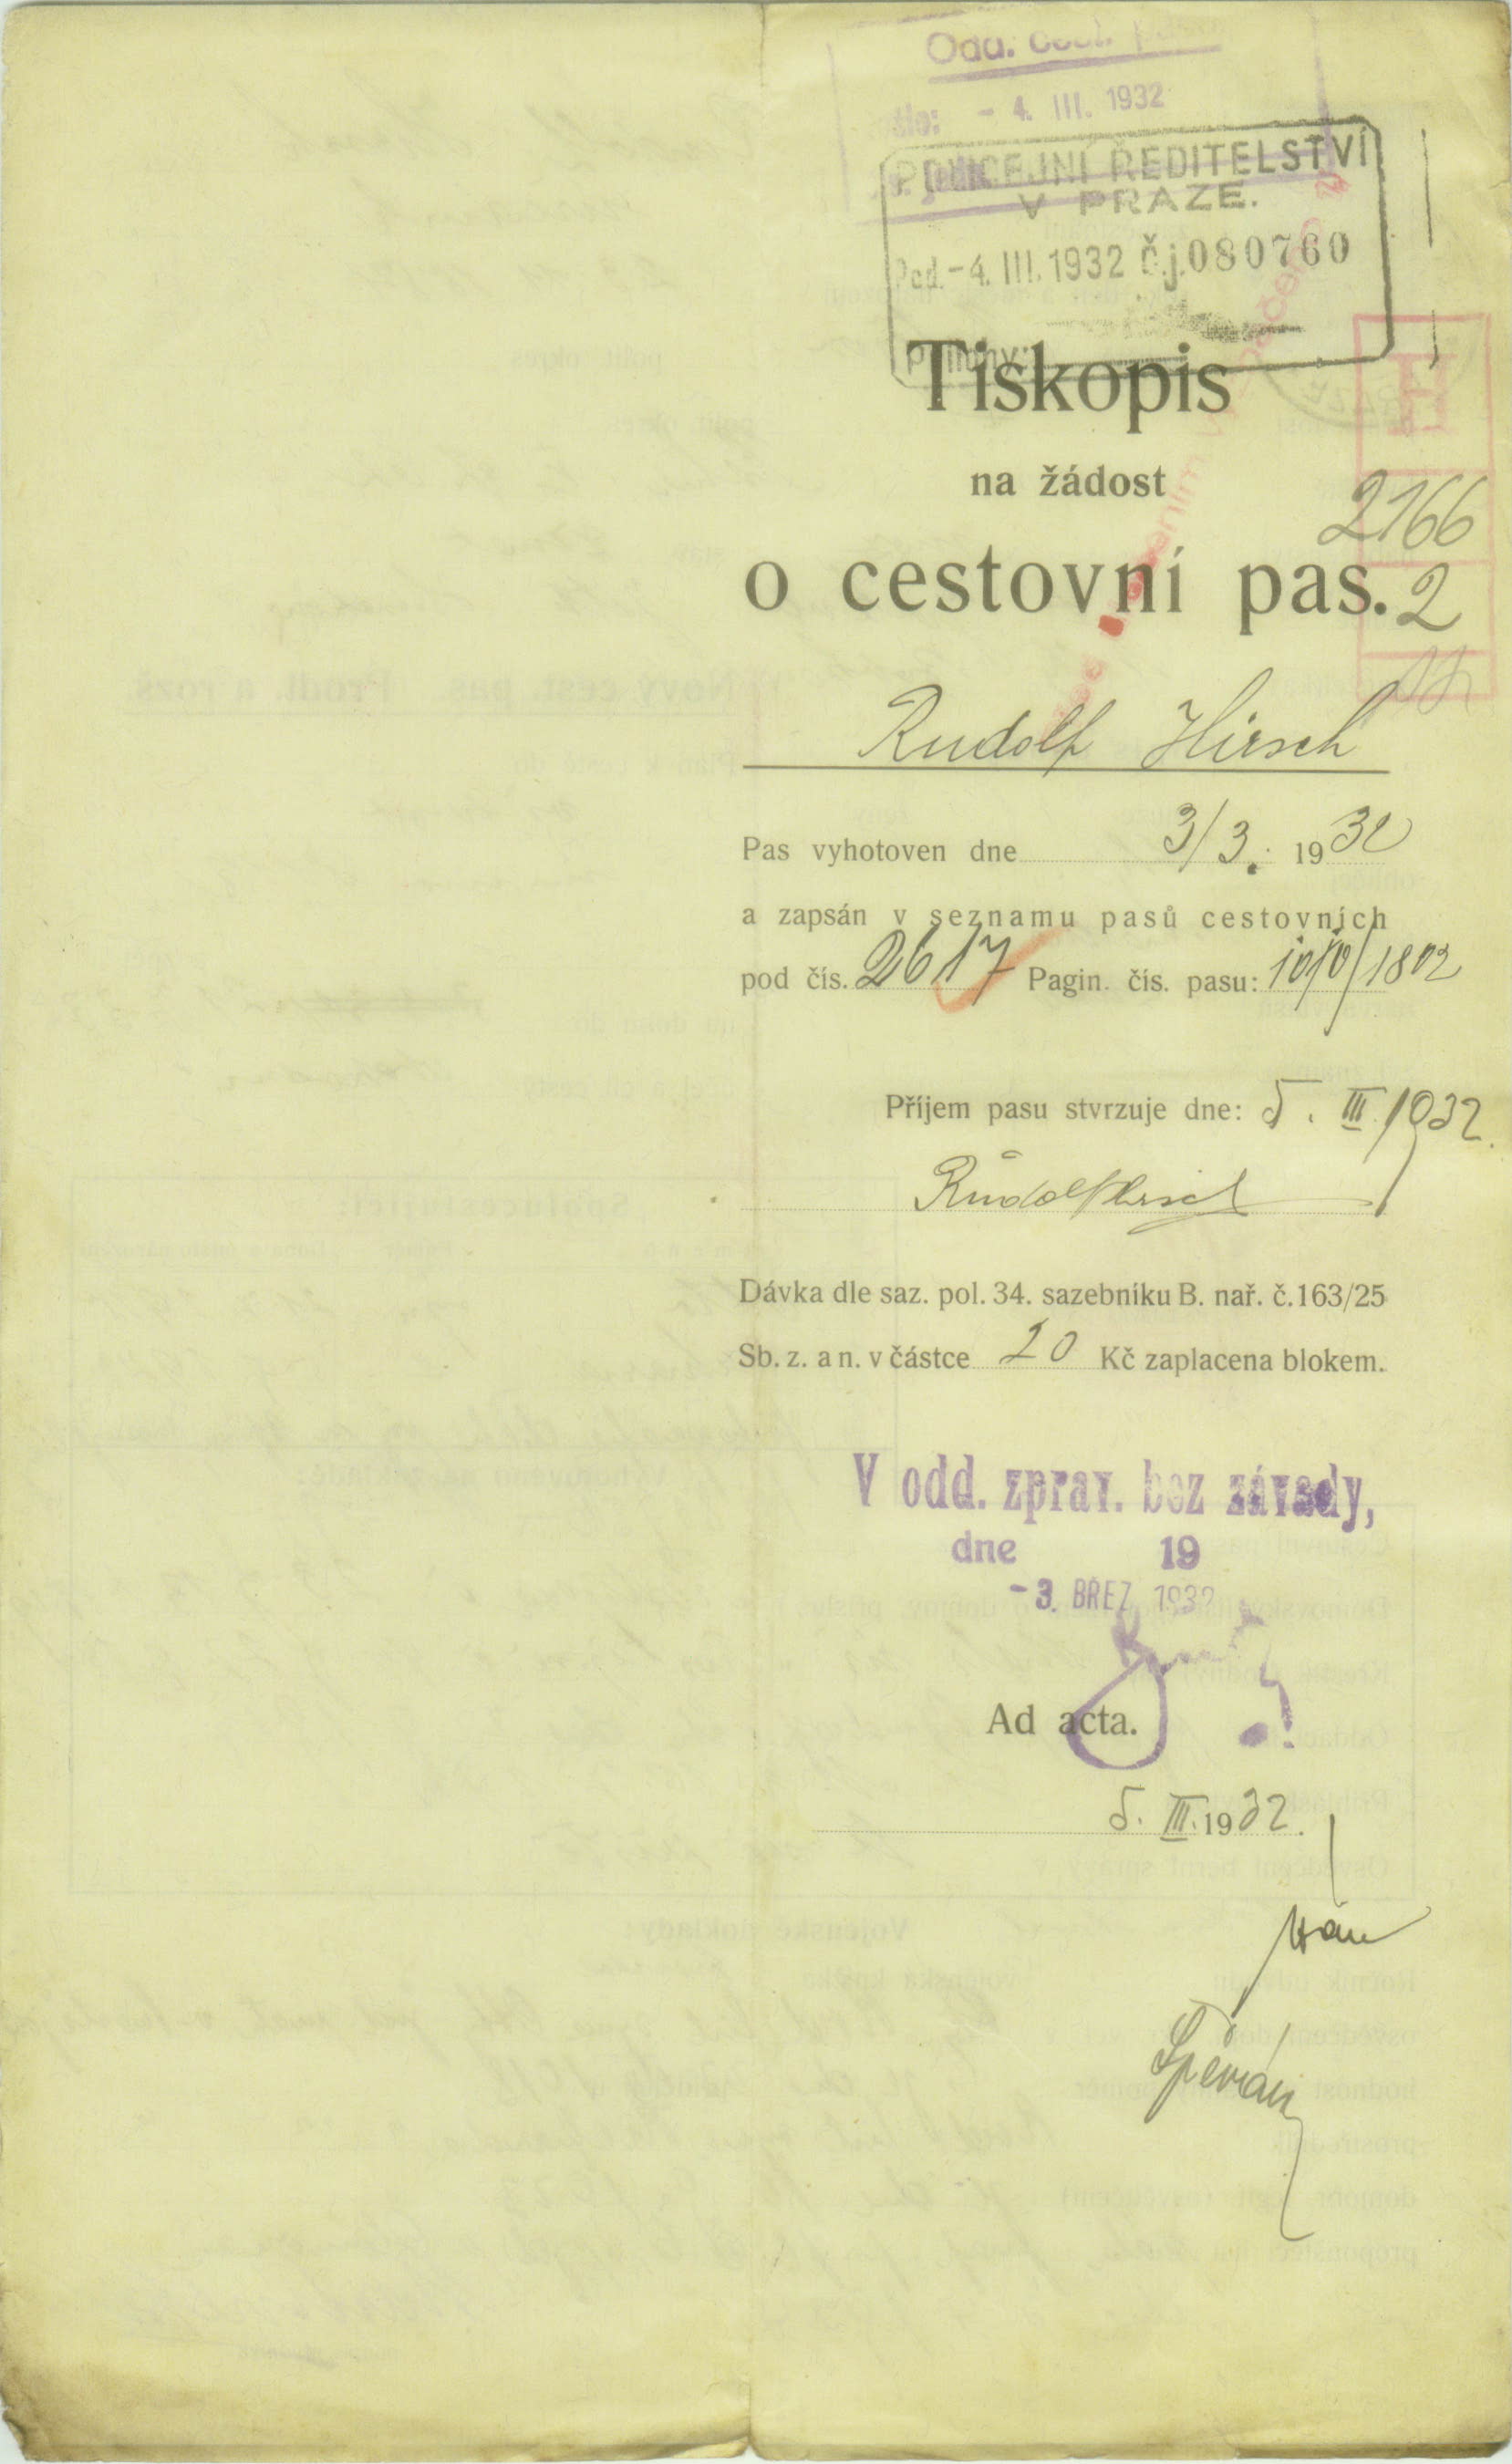 Odd. cest.
- 4. III. 1932
POLICEJNÍ ŘEDITELSTVÍ
V PRAZE.
Pod. -4. III. 1932 Č.j. 080760
Přílohy:
Tiskopis
H
na žádost
2166
o cestovní pas.
2
Rudolf Hirsch
Pas vyhotoven dne 3/3. 1932
a zapsán v seznamu pasů cestovních
pod čís. 2617 Pagin. čís. pasu: /1802
Příjem pasu stvrzuje dne: 5. III. 1932.
Rudolf Hirsch
Dávka dle saz. pol. 34. sazebníku B. nař. č. 163/25
Sb. z. a n. v částce 20 Kč zaplacena blokem.
V odd. zprav. bez závady,
dne 19
- 3. BŘEZ. 1932
Ad acta.
5. III. 1932.